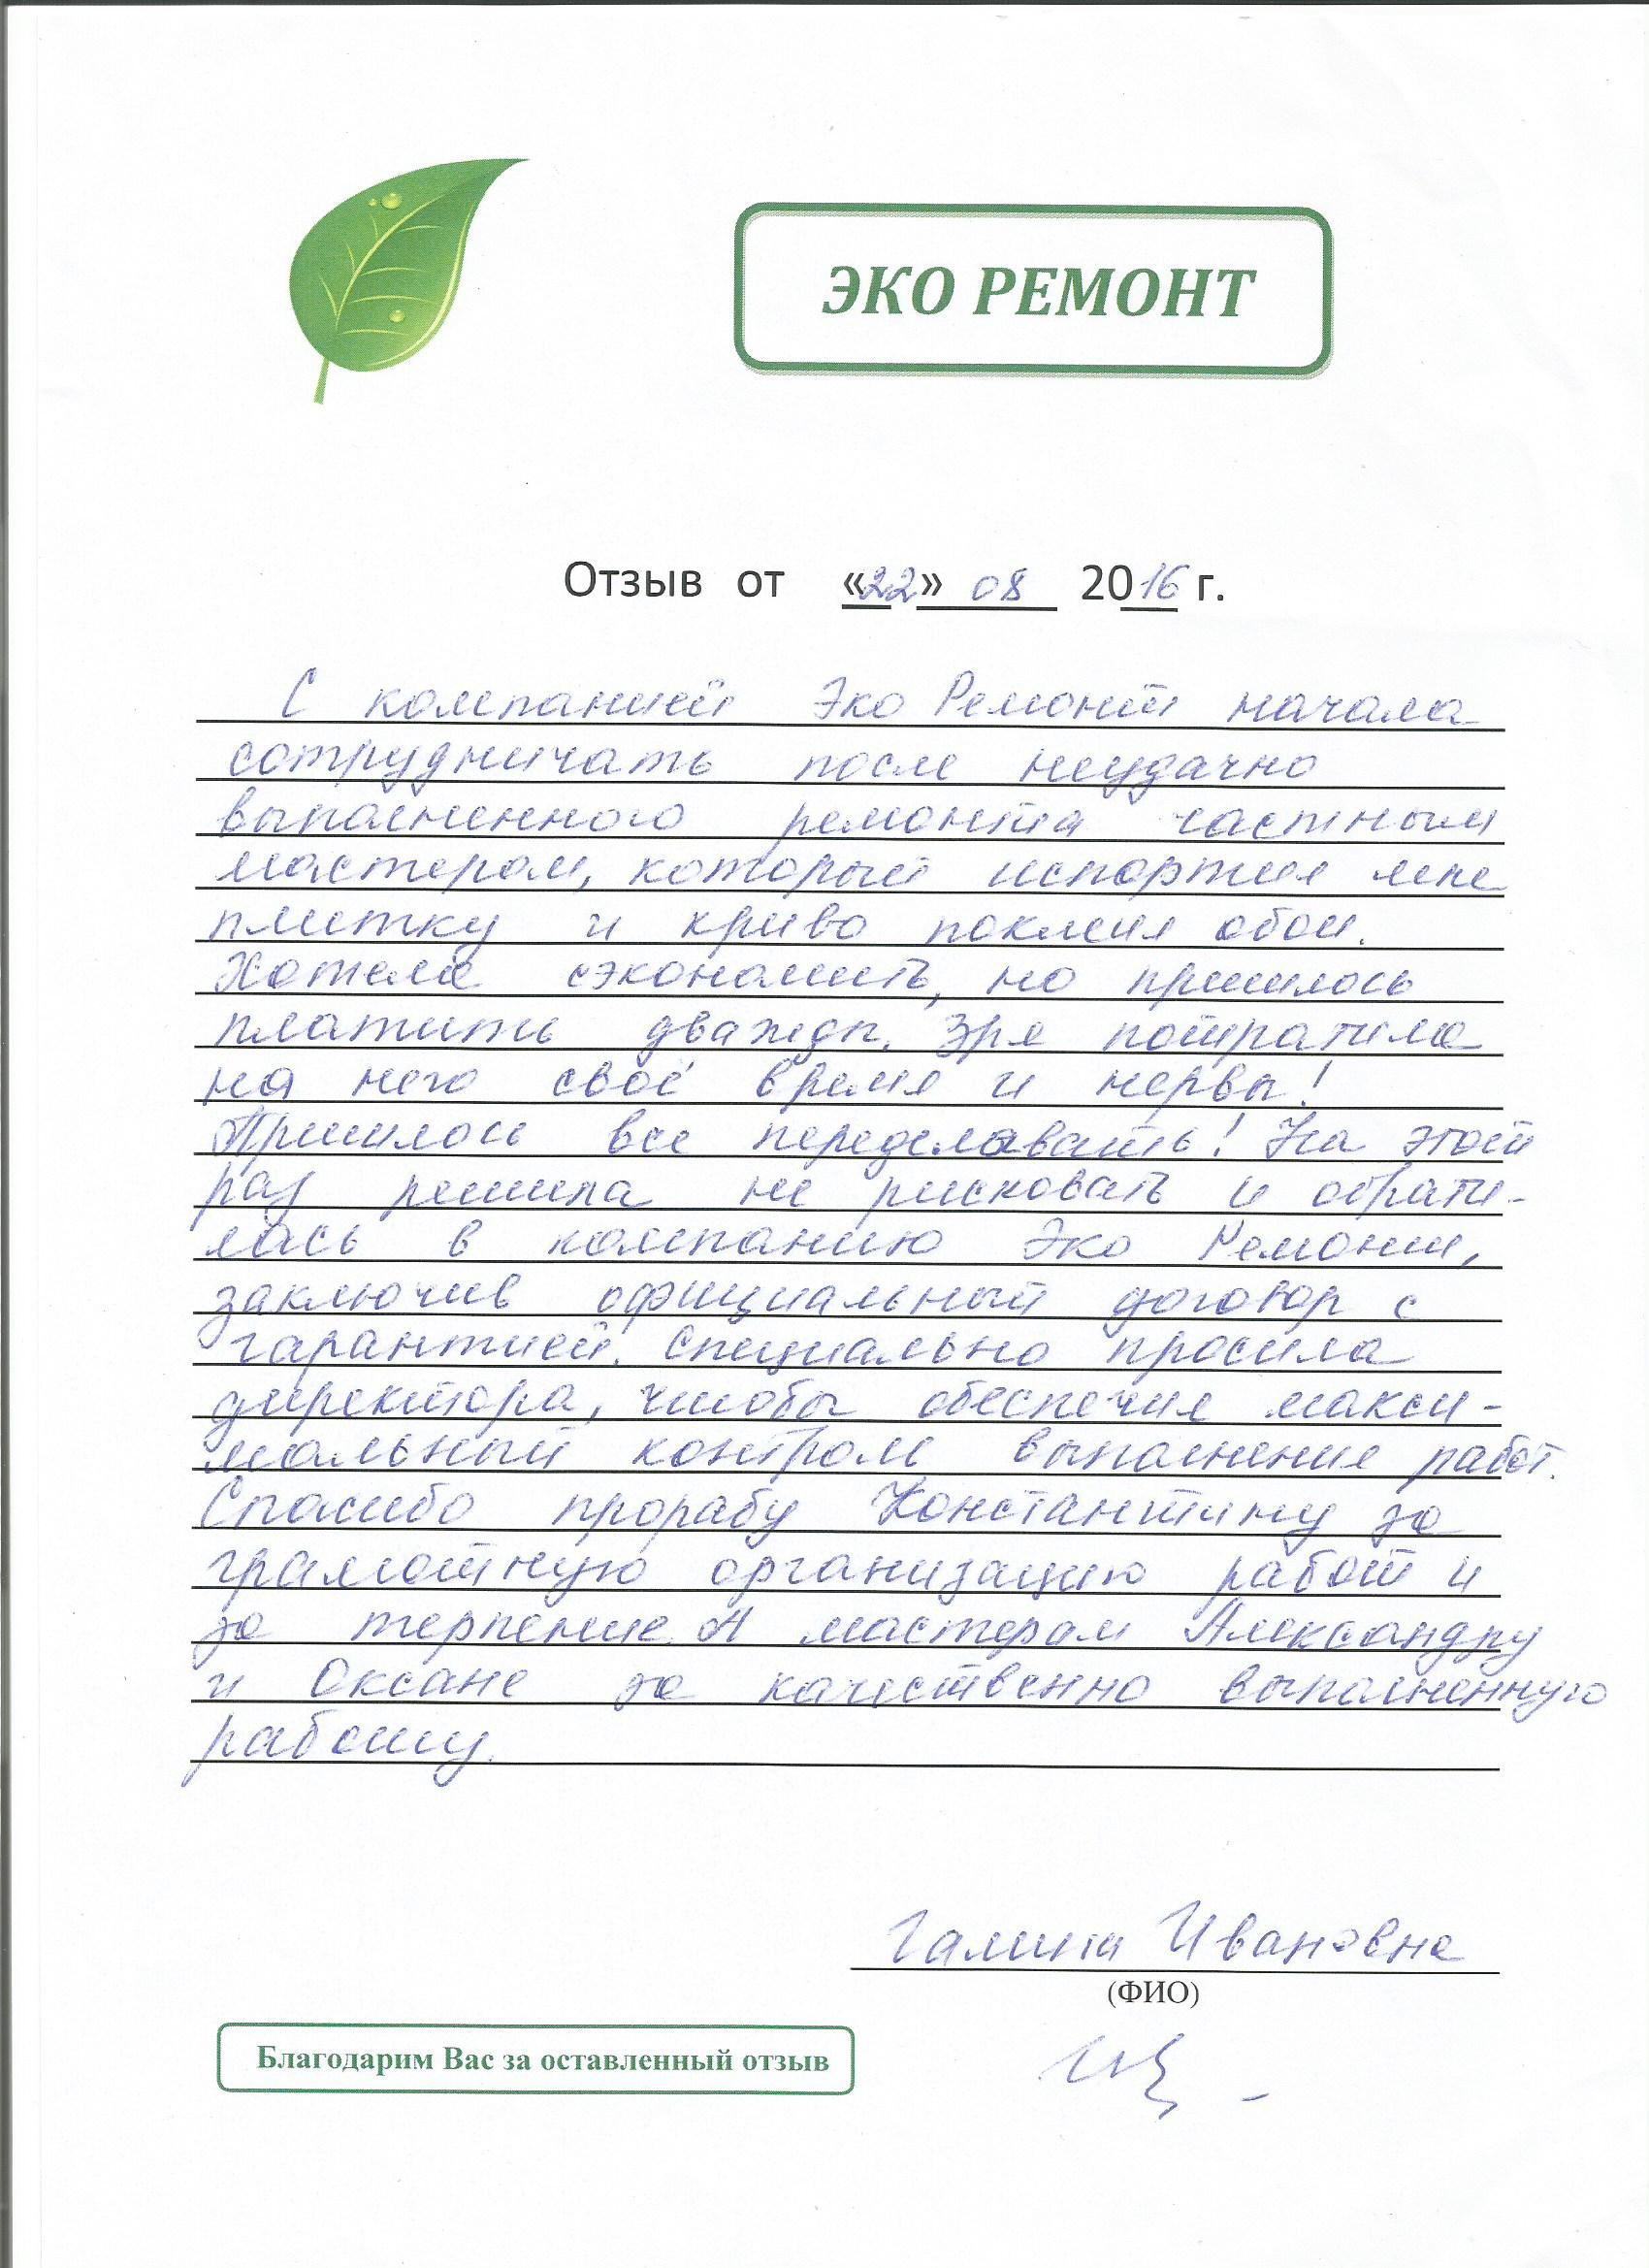 ЭКО РЕМОНТ
Отзыв от «22» 08 2016 г.
С компанией Эко Ремонт начала
сотрудничать после неудачно
выполненного ремонта частным
мастером, который испортил мне
плитку и криво поклеил обои.
Хотела сэкономить, но пришлось
платить дважды. Зря потратила
на него своё время и нервы!
Пришлось все переделовать! На этот
раз решила не рисковать и обрати-
лась в компанию Эко Ремонт,
заключив официальный договор с
гарантией. Специально просила
директора, чтобы обеспечил макси-
мальный контроль выполнение работ.
Спасибо прорабу Константину за
грамотную организацию работ и
за терпение. А мастерам Александру
и Оксане за качественно выполненную
работу.
Галина Ивановна
(ФИО)
Благодарим Вас за оставленный отзыв